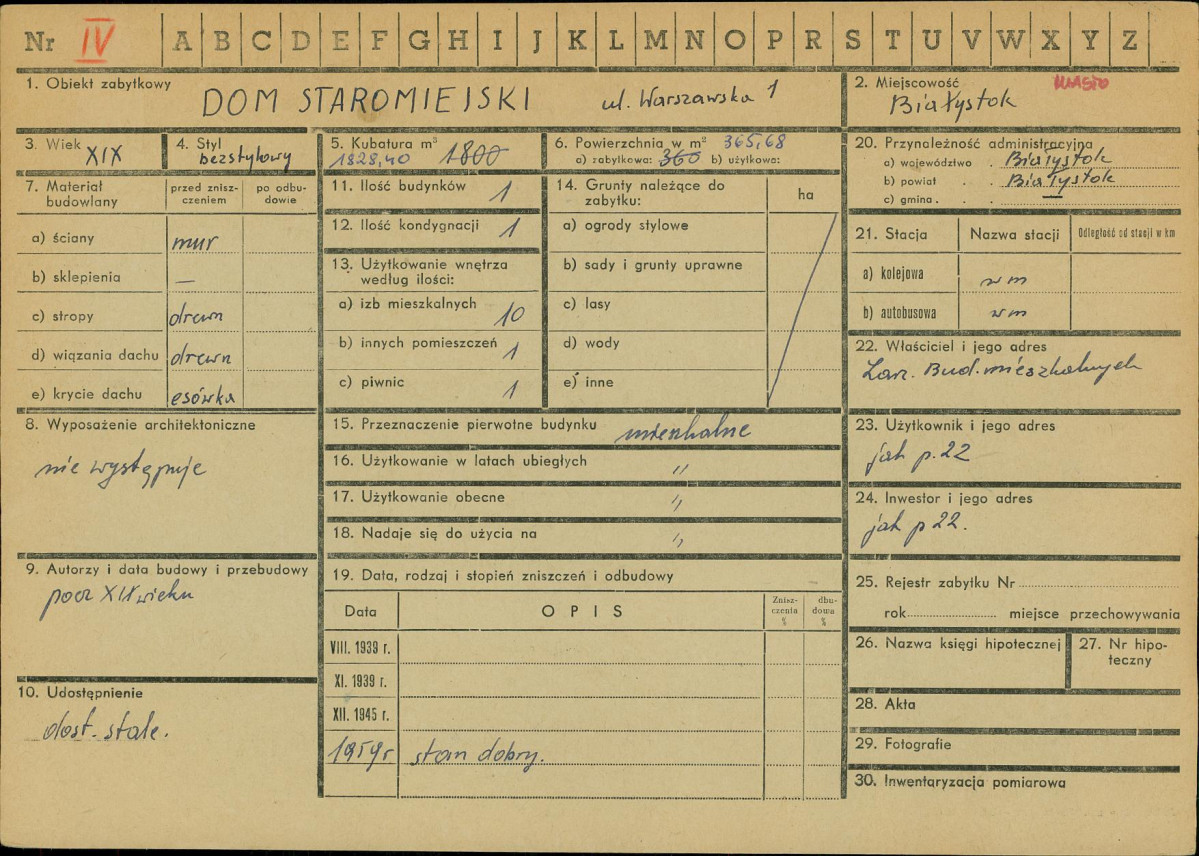 Nr IV A B C D E F G H I J K L M N O P R S T U V W X Y Z
1. Obiekt zabytkowy
DOM STAROMIEJSKI ul. Warszawska 1
2. Miejscowość MIASTO
Białystok
3. Wiek
XIX
4. Styl
bezstylowy
5. Kubatura m³
1828,40 1800
6. Powierzchnia w m² 365,68
a) zabytkowa: 360 b) użytkowa:
7. Materiał budowlany
przed znisz-
czeniem
po odbu-
dowie
a) ściany mur
b) sklepienia —
c) stropy drewn
d) wiązania dachu drewn
e) krycie dachu esówka
8. Wyposażenie architektoniczne
nie występuje
9. Autorzy i data budowy i przebudowy
pocz XIX wieku
10. Udostępnienie
dost. stale.
11. Ilość budynków 1
12. Ilość kondygnacji 1
13. Użytkowanie wnętrza
według ilości:
a) izb mieszkalnych 10
b) innych pomieszczeń 1
c) piwnic 1
14. Grunty należące do
zabytku:
ha
a) ogrody stylowe
b) sady i grunty uprawne
c) lasy
d) wody
e) inne
15. Przeznaczenie pierwotne budynku mieszkalne
16. Użytkowanie w latach ubiegłych "
17. Użytkowanie obecne "
18. Nadaje się do użycia na "
19. Data, rodzaj i stopień zniszczeń i odbudowy
Data OPIS
Znisz-
czenia
%
dbu-
dowa
%
VIII. 1939 r.
XI. 1939 r.
XII. 1945 r.
1959r stan dobry.
20. Przynależność administracyjna
a) województwo Białystok
b) powiat Białystok
c) gmina
21. Stacja Nazwa stacji Odległość od stacji w km
a) kolejowa w m
b) autobusowa w m
22. Właściciel i jego adres
Zarz. Bud. mieszkalnych
23. Użytkownik i jego adres
jak p. 22
24. Inwestor i jego adres
jak p 22.
25. Rejestr zabytku Nr
rok miejsce przechowywania
26. Nazwa księgi hipotecznej
27. Nr hipo-
teczny
28. Akta
29. Fotografie
30. Inwentaryzacja pomiarowa